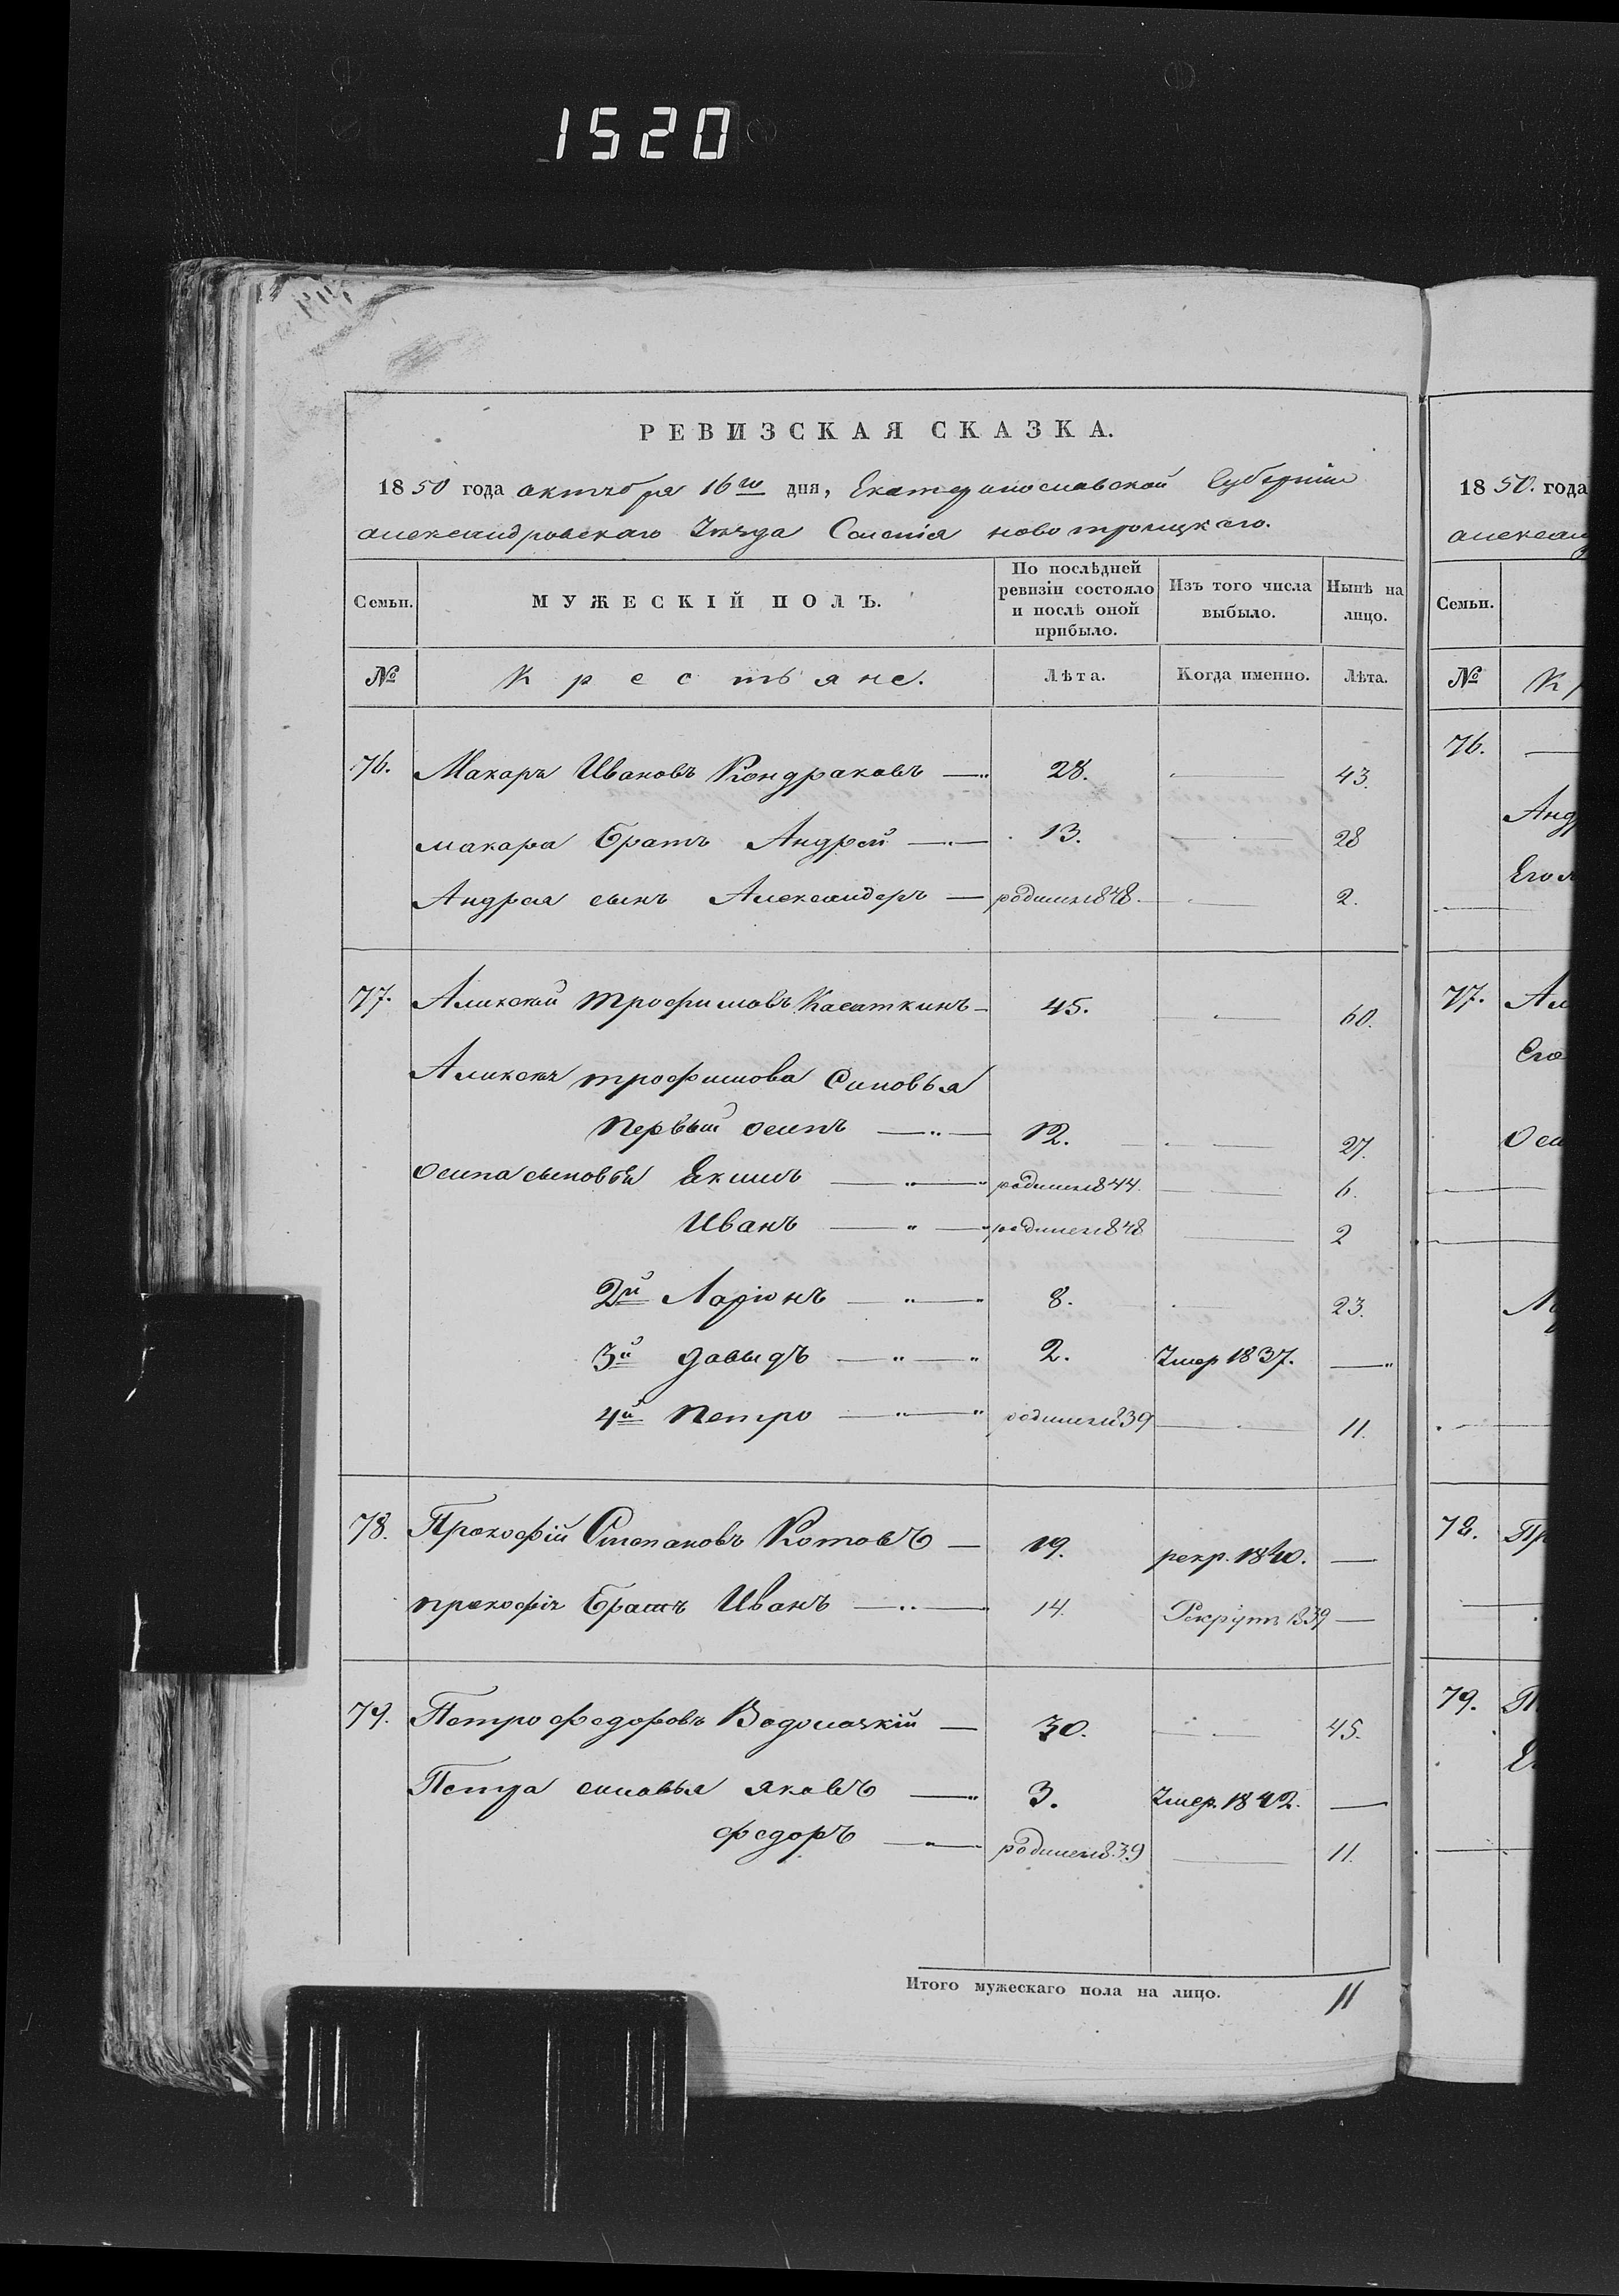 1520
РЕВИЗСКАЯ СКАЗКА.
1850 года октября 16го дня, Екатеринославской Губернии
александровскаго Уезда Селенія новотроицкаго.
Семьи. МУЖЕСКІЙ ПОЛЪ. По послѣдней ревизіи состояло и послѣ оной прибыло. Изъ того числа выбыло. Нынѣ на лицо.
№ Крестьяне. Лѣта. Когда именно. Лѣта.
76. Макаръ Ивановъ Кондраковъ 28. 43.
макара братъ Андрей 13. 28
Андрея сынъ Александеръ родился 1848. 2.
77. Аликсей трофимовъ Касаткинъ 45. 60.
Аликсея трофимова Синовья
первый осипъ 12. 27.
Осипа сыновья Екимъ родился 1844. 6.
Иванъ родился 1848 2
2й Ларіонъ 8. 23.
3й давыдъ 2. Умер 1837.
4й петро родился 1839 11.
78. Прокофій Степановъ Котовъ 19. рекр. 1840.
прокофія братъ Иванъ 14. Рекрутъ 1839
79. Петро федоровъ 30. 45.
Петра синовья яковъ 3. Умер. 1842.
федоръ родился 1839 11.
Итого мужескаго пола на лицо. 11
1850. года
Семьи.
№
76.
77.
78.
79.